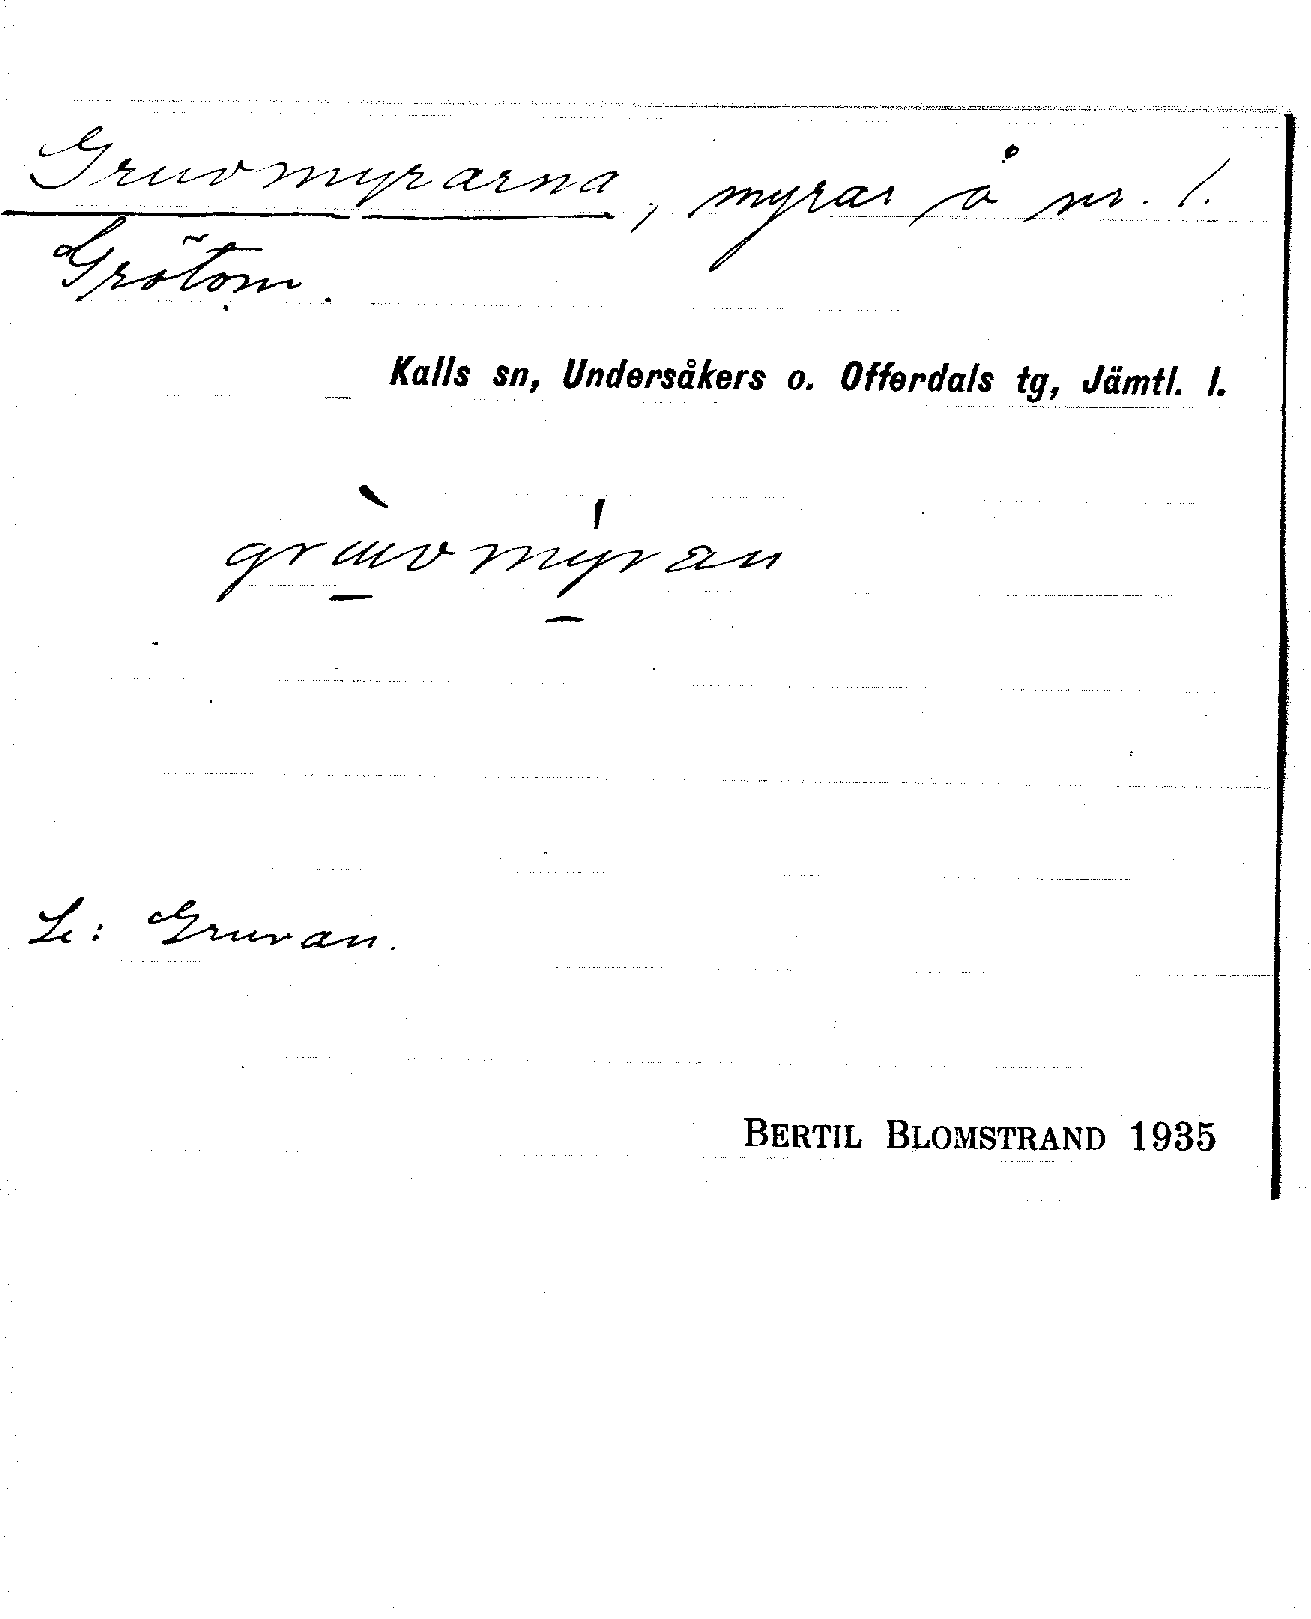 Gruvmyrarna, myrar å nr. 1.
Grötom.
Kalls sn, Undersåkers o. Offerdals tg, Jämtl. l.
grùvmýran
Le: Gruvan.
BERTIL BLOMSTRAND 1935